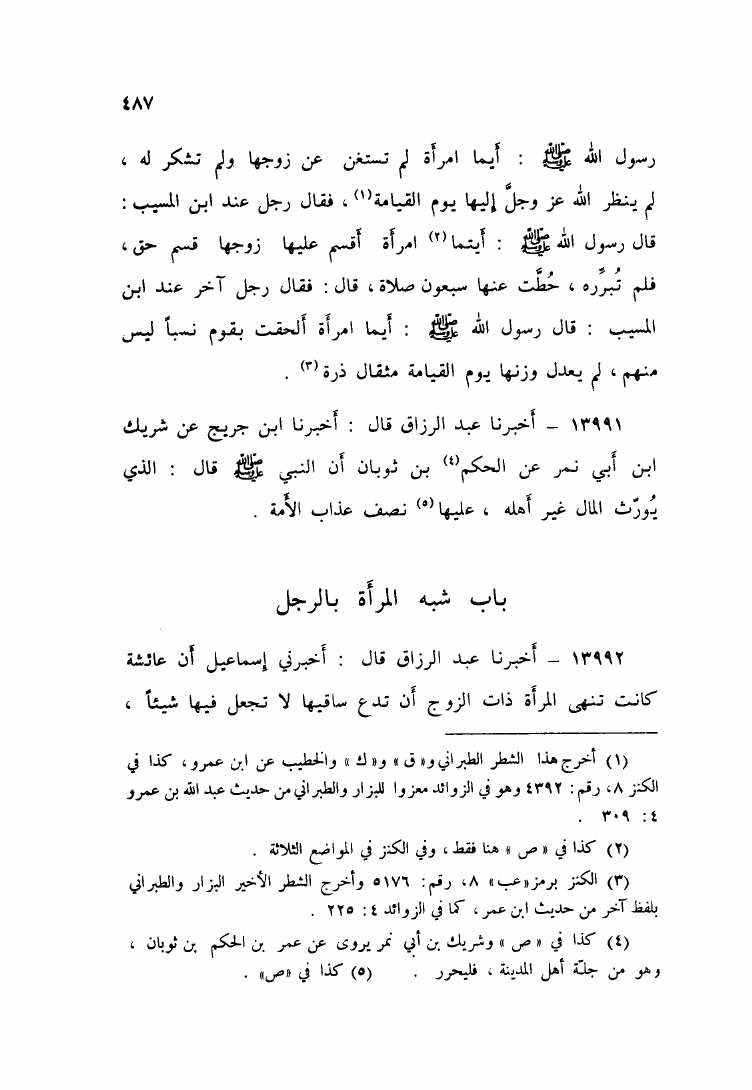 ٤٨٧
رسول الله ﷺ : أيما امرأة لم تستغن عن زوجها ولم تشكر له ،
لم ينظر الله عز وجلَّ إليها يوم القيامة(١) ، فقال رجل عند ابن المسيب :
قال رسول الله ﷺ : أيتما(٢) امرأة أقسم عليها زوجها قسم حق ،
فلم تُبرَّره ، حُطَّت عنها سبعون صلاة ، قال : فقال رجل آخر عند ابن
المسيب : قال رسول الله ﷺ : أيما امرأة ألحقت بقوم نسباً ليس
منهم ، لم يعدل وزنها يوم القيامة مثقال ذرة(٣) .
١٣٩٩١ – أخبرنا عبد الرزاق قال : أخبرنا ابن جريج عن شريك
ابن أبي نمر عن الحكم(٤) بن ثوبان أن النبي ﷺ قال : الذي
يُورّث المال غير أهله ، عليها(٥) نصف عذاب الأمة .
باب شبه المرأة بالرجل
١٣٩٩٢ – أخبرنا عبد الرزاق قال : أخبرني إسماعيل أن عائشة
كانت تنهى المرأة ذات الزوج أن تدع ساقيها لا تجعل فيها شيئاً ،
(١) أخرج هذا الشطر الطبراني و« ق » و« ك » والخطيب عن ابن عمرو ، كذا في
الكنز ٨، رقم: ٤٣٩٢ وهو في الزوائد معزوا للبزار والطبراني من حديث عبد الله بن عمرو
٤: ٣٠٩ .
(٢) كذا في « ص » هنا فقط ، وفي الكنز في المواضع الثلاثة .
(٣) الكنز برمز«عب» ٨، رقم: ٥١٧٦ وأخرج الشطر الأخير البزار والطبراني
بلفظ آخر من حديث ابن عمر ، كما في الزوائد ٤: ٢٢٥ .
(٤) كذا في « ص » وشريك بن أبي نمر يروى عن عمر بن الحكم بن ثوبان ،
وهو من جلّة أهل المدينة ، فليحرر . (٥) كذا في «ص» .